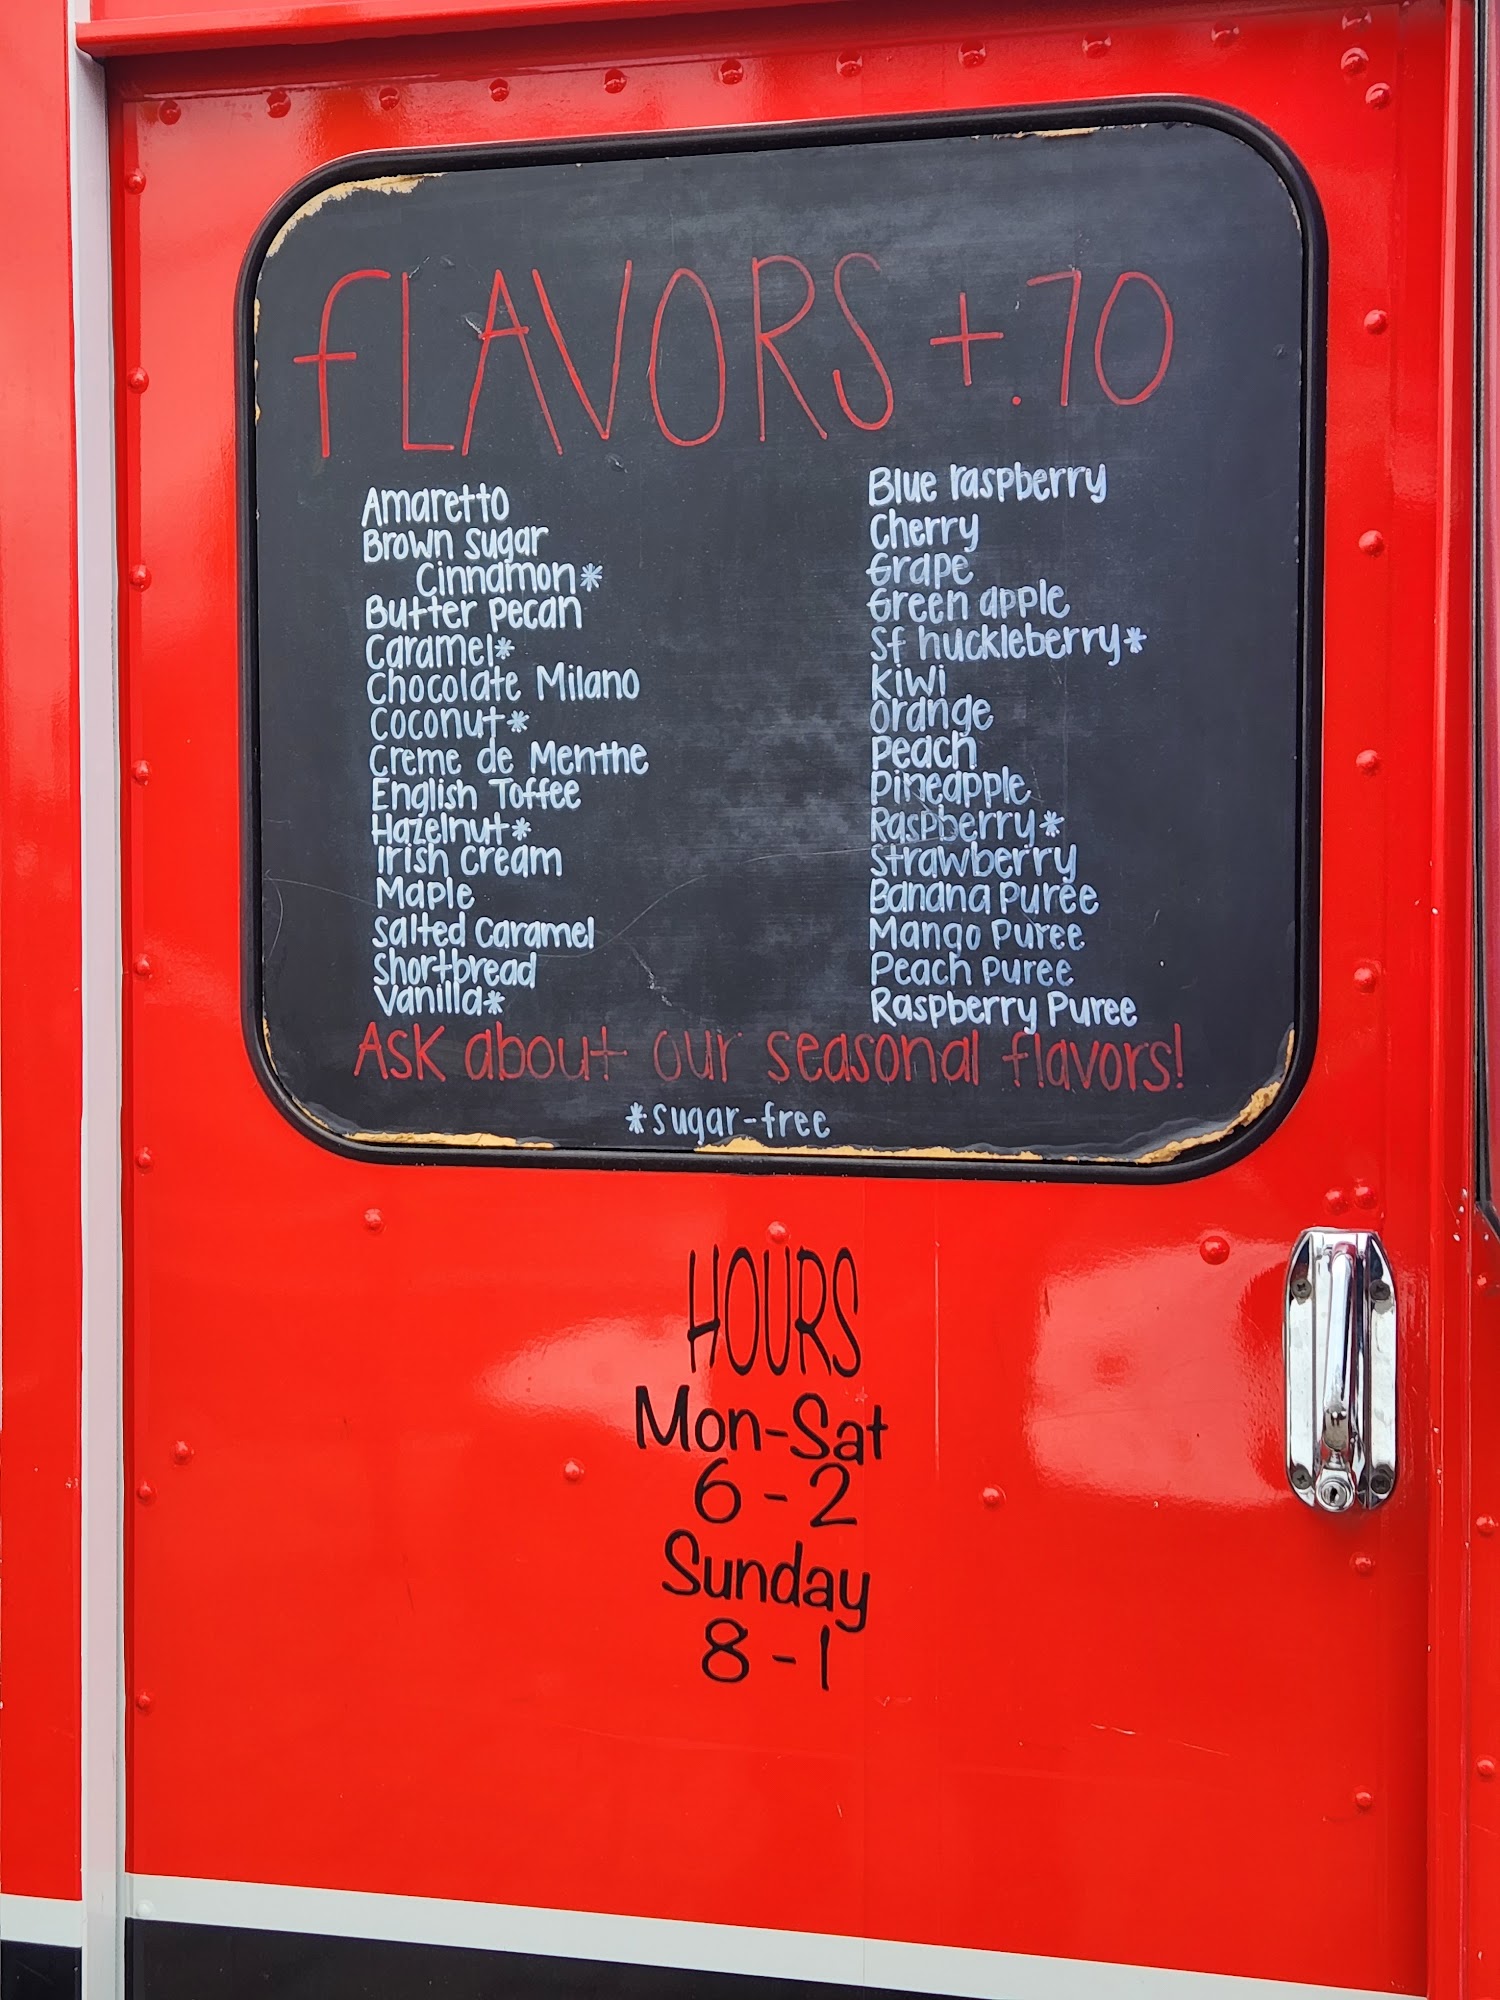 FLAVORS +.70
Amaretto
Brown sugar
Cinnamon*
Butter Pecan
Caramel*
Chocolate Milano
Coconut*
Creme de Menthe
English Toffee
Hazelnut*
Irish Cream
Maple
Salted Caramel
Shortbread
Vanilla*
Blue raspberry
Cherry
Grape
Green apple
Sf huckleberry*
Kiwi
Orange
Peach
Pineapple
Raspberry*
Strawberry
Banana Purée
Mango Puree
Peach Puree
Raspberry Puree
Ask about our seasonal flavors!
*sugar-free
HOURS
Mon-Sat
6 - 2
Sunday
8 - 1